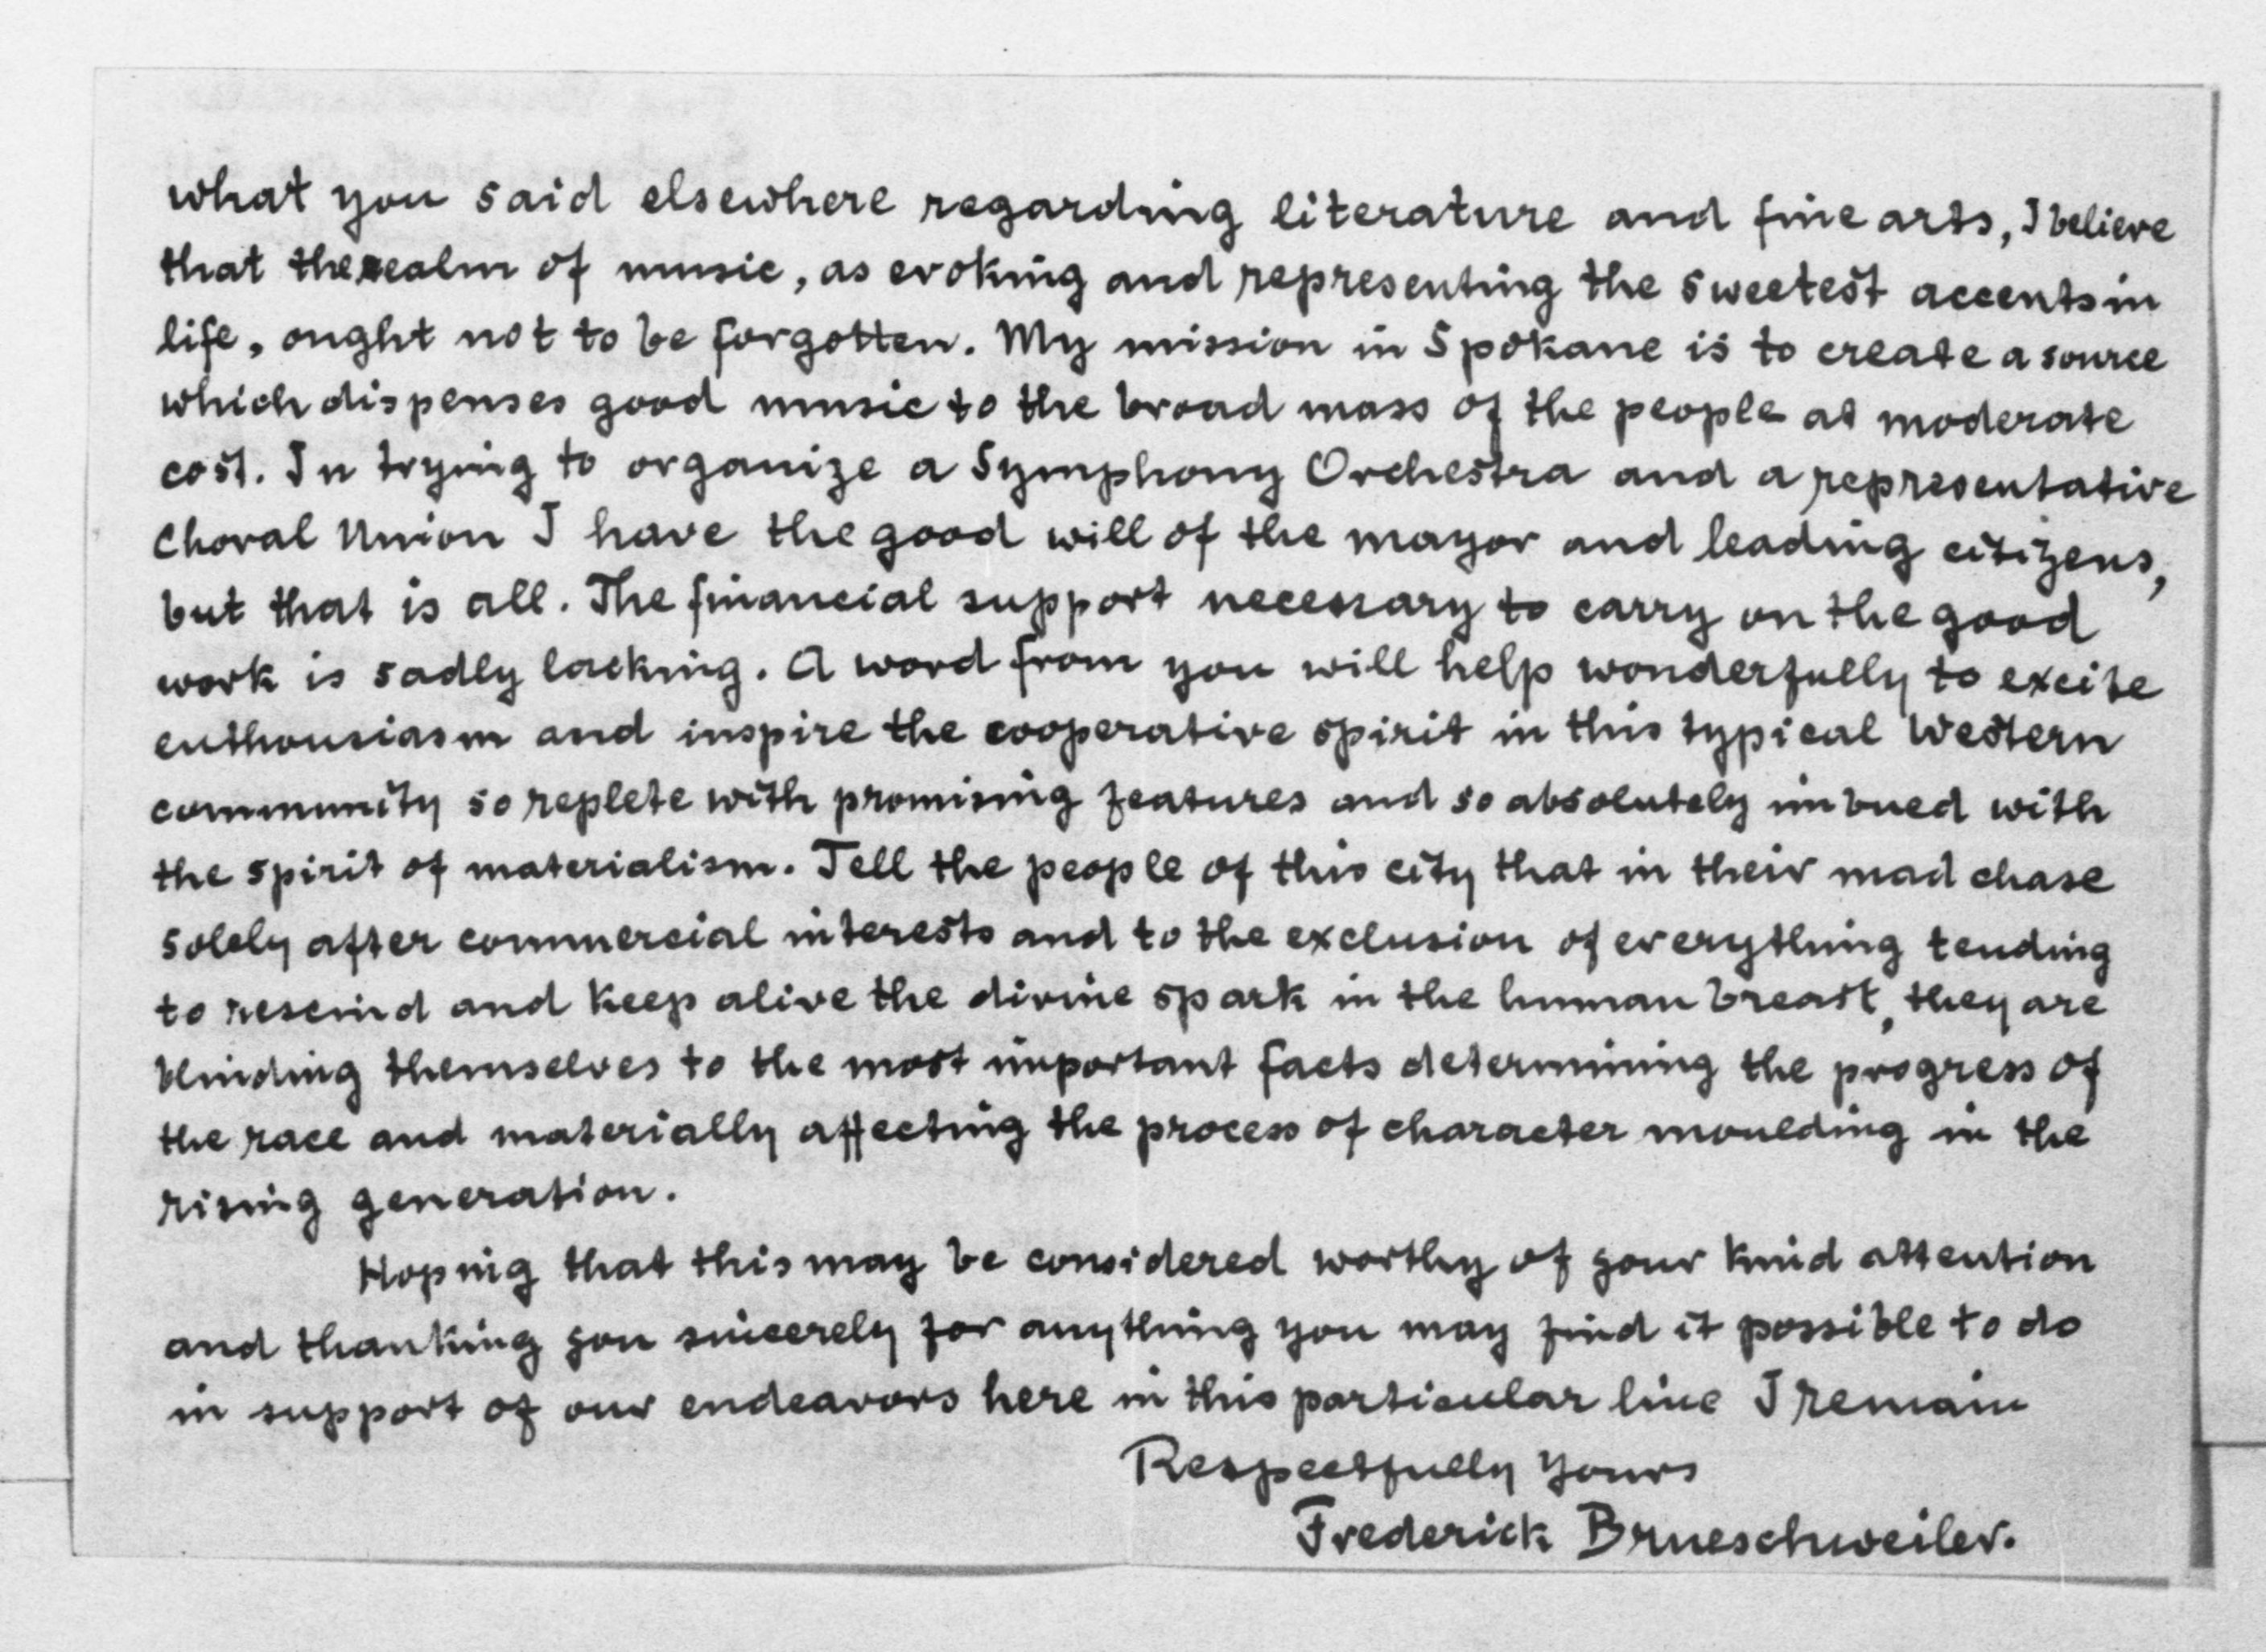 what you said elsewhere regarding literature and fine arts, I believe
that the realm of music, as evoking and representing the sweetest accents in
life, ought not to be forgotten. My mission in Spokane is to create a source
which dispenses good music to the broad mass of the people at moderate
cost. In trying to organize a Symphony Orchestra and a representative
Choral Union I have the good will of the mayor and leading citizens,
but that is all. The financial support necessary to carry on the good
work is sadly lacking. A word from you will help wonderfully to excite
enthousiasm and inspire the cooperative spirit in this typical Western
community so replete with promising features and so absolutely imbued with
the spirit of materialism. Tell the people of this city that in their mad chase
solely after commercial interests and to the exclusion of everything tending
to rescind and keep alive the divine spark in the human breast, they are
blinding themselves to the most important facts determining the progress of
the race and materially affecting the process of character moulding in the
rising generation.
Hoping that this may be considered worthy of your kind attention
and thanking you sincerely for anything you may find it possible to do
in support of our endeavors here in this particular line I remain
Respectfully Yours
Frederick Brueschweiler.